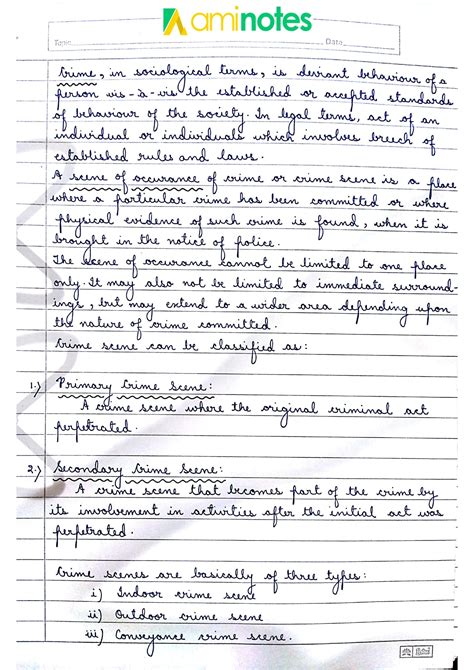 aminotes
Topic
Date
Crime, in sociological terms, is deviant behaviour of a
person vis-à-vis the established or accepted standards
of behaviour of the society. In legal terms, act of an
individual or individuals which involves breech of
established rules and laws.
A scene of occurance of crime or crime scene is a place
where a particular crime has been committed or where
physical evidence of such crime is found, when it is
brought in the notice of police.
The scene of occurance cannot be limited to one place
only. It may also not be limited to immediate surround-
ings, but may extend to a wider area depending upon
the nature of crime committed.
Crime scene can be classified as:
1.) Primary Crime Scene:
A crime scene where the original criminal act
perpetrated.
2.) Secondary Crime Scene:
A crime scene that becomes part of the crime by
its involvement in activities after the initial act was
perpetrated.
Crime scenes are basically of three types:
i) Indoor crime scene
ii) Outdoor crime scene
iii) Conveyance crime scene.